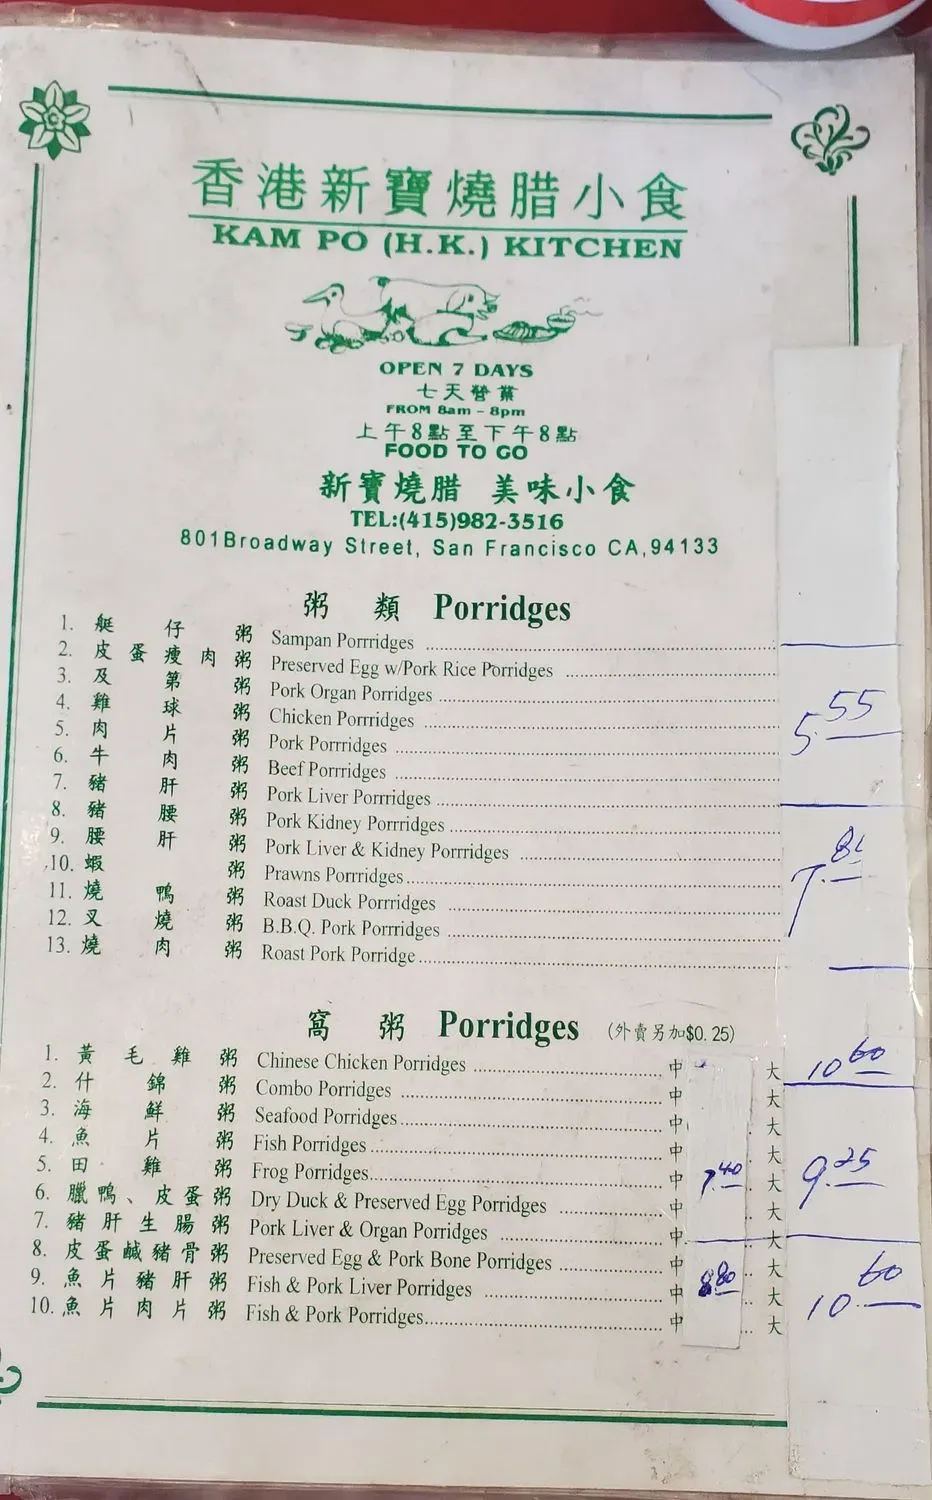 香港新寶燒腊小食
KAM PO (H.K.) KITCHEN
OPEN 7 DAYS
七天營業
FROM 8am - 8pm
上午8點至下午8點
FOOD TO GO
新寶燒腊 美味小食
TEL:(415)982-3516
801Broadway Street, San Francisco CA,94133
粥 類 Porridges
1. 艇仔粥 Sampan Porrridges
2. 皮蛋瘦肉粥 Preserved Egg w/Pork Rice Porridges
3. 及第粥 Pork Organ Porridges
4. 雞球粥 Chicken Porrridges 5.55
5. 肉片粥 Pork Porrridges
6. 牛肉粥 Beef Porrridges
7. 豬肝粥 Pork Liver Porrridges
8. 豬腰粥 Pork Kidney Porrridges
9. 腰肝粥 Pork Liver & Kidney Porrridges
10. 蝦粥 Prawns Porrridges
11. 燒鴨粥 Roast Duck Porrridges
12. 叉燒粥 B.B.Q. Pork Porrridges
13. 燒肉粥 Roast Pork Porridge
窩 粥 Porridges (外賣另加$0.25)
1. 黃毛雞粥 Chinese Chicken Porridges 中 大 10.60
2. 什錦粥 Combo Porridges 中 大
3. 海鮮粥 Seafood Porridges 中 大
4. 魚片粥 Fish Porridges 中 大
5. 田雞粥 Frog Porridges 中 7.40 大 9.25
6. 臘鴨、皮蛋粥 Dry Duck & Preserved Egg Porridges 中 大
7. 豬肝生腸粥 Pork Liver & Organ Porridges 中 大
8. 皮蛋鹹豬骨粥 Preserved Egg & Pork Bone Porridges 中 大
9. 魚片豬肝粥 Fish & Pork Liver Porridges 中 8.80 大 10.60
10. 魚片肉片粥 Fish & Pork Porridges 中 大